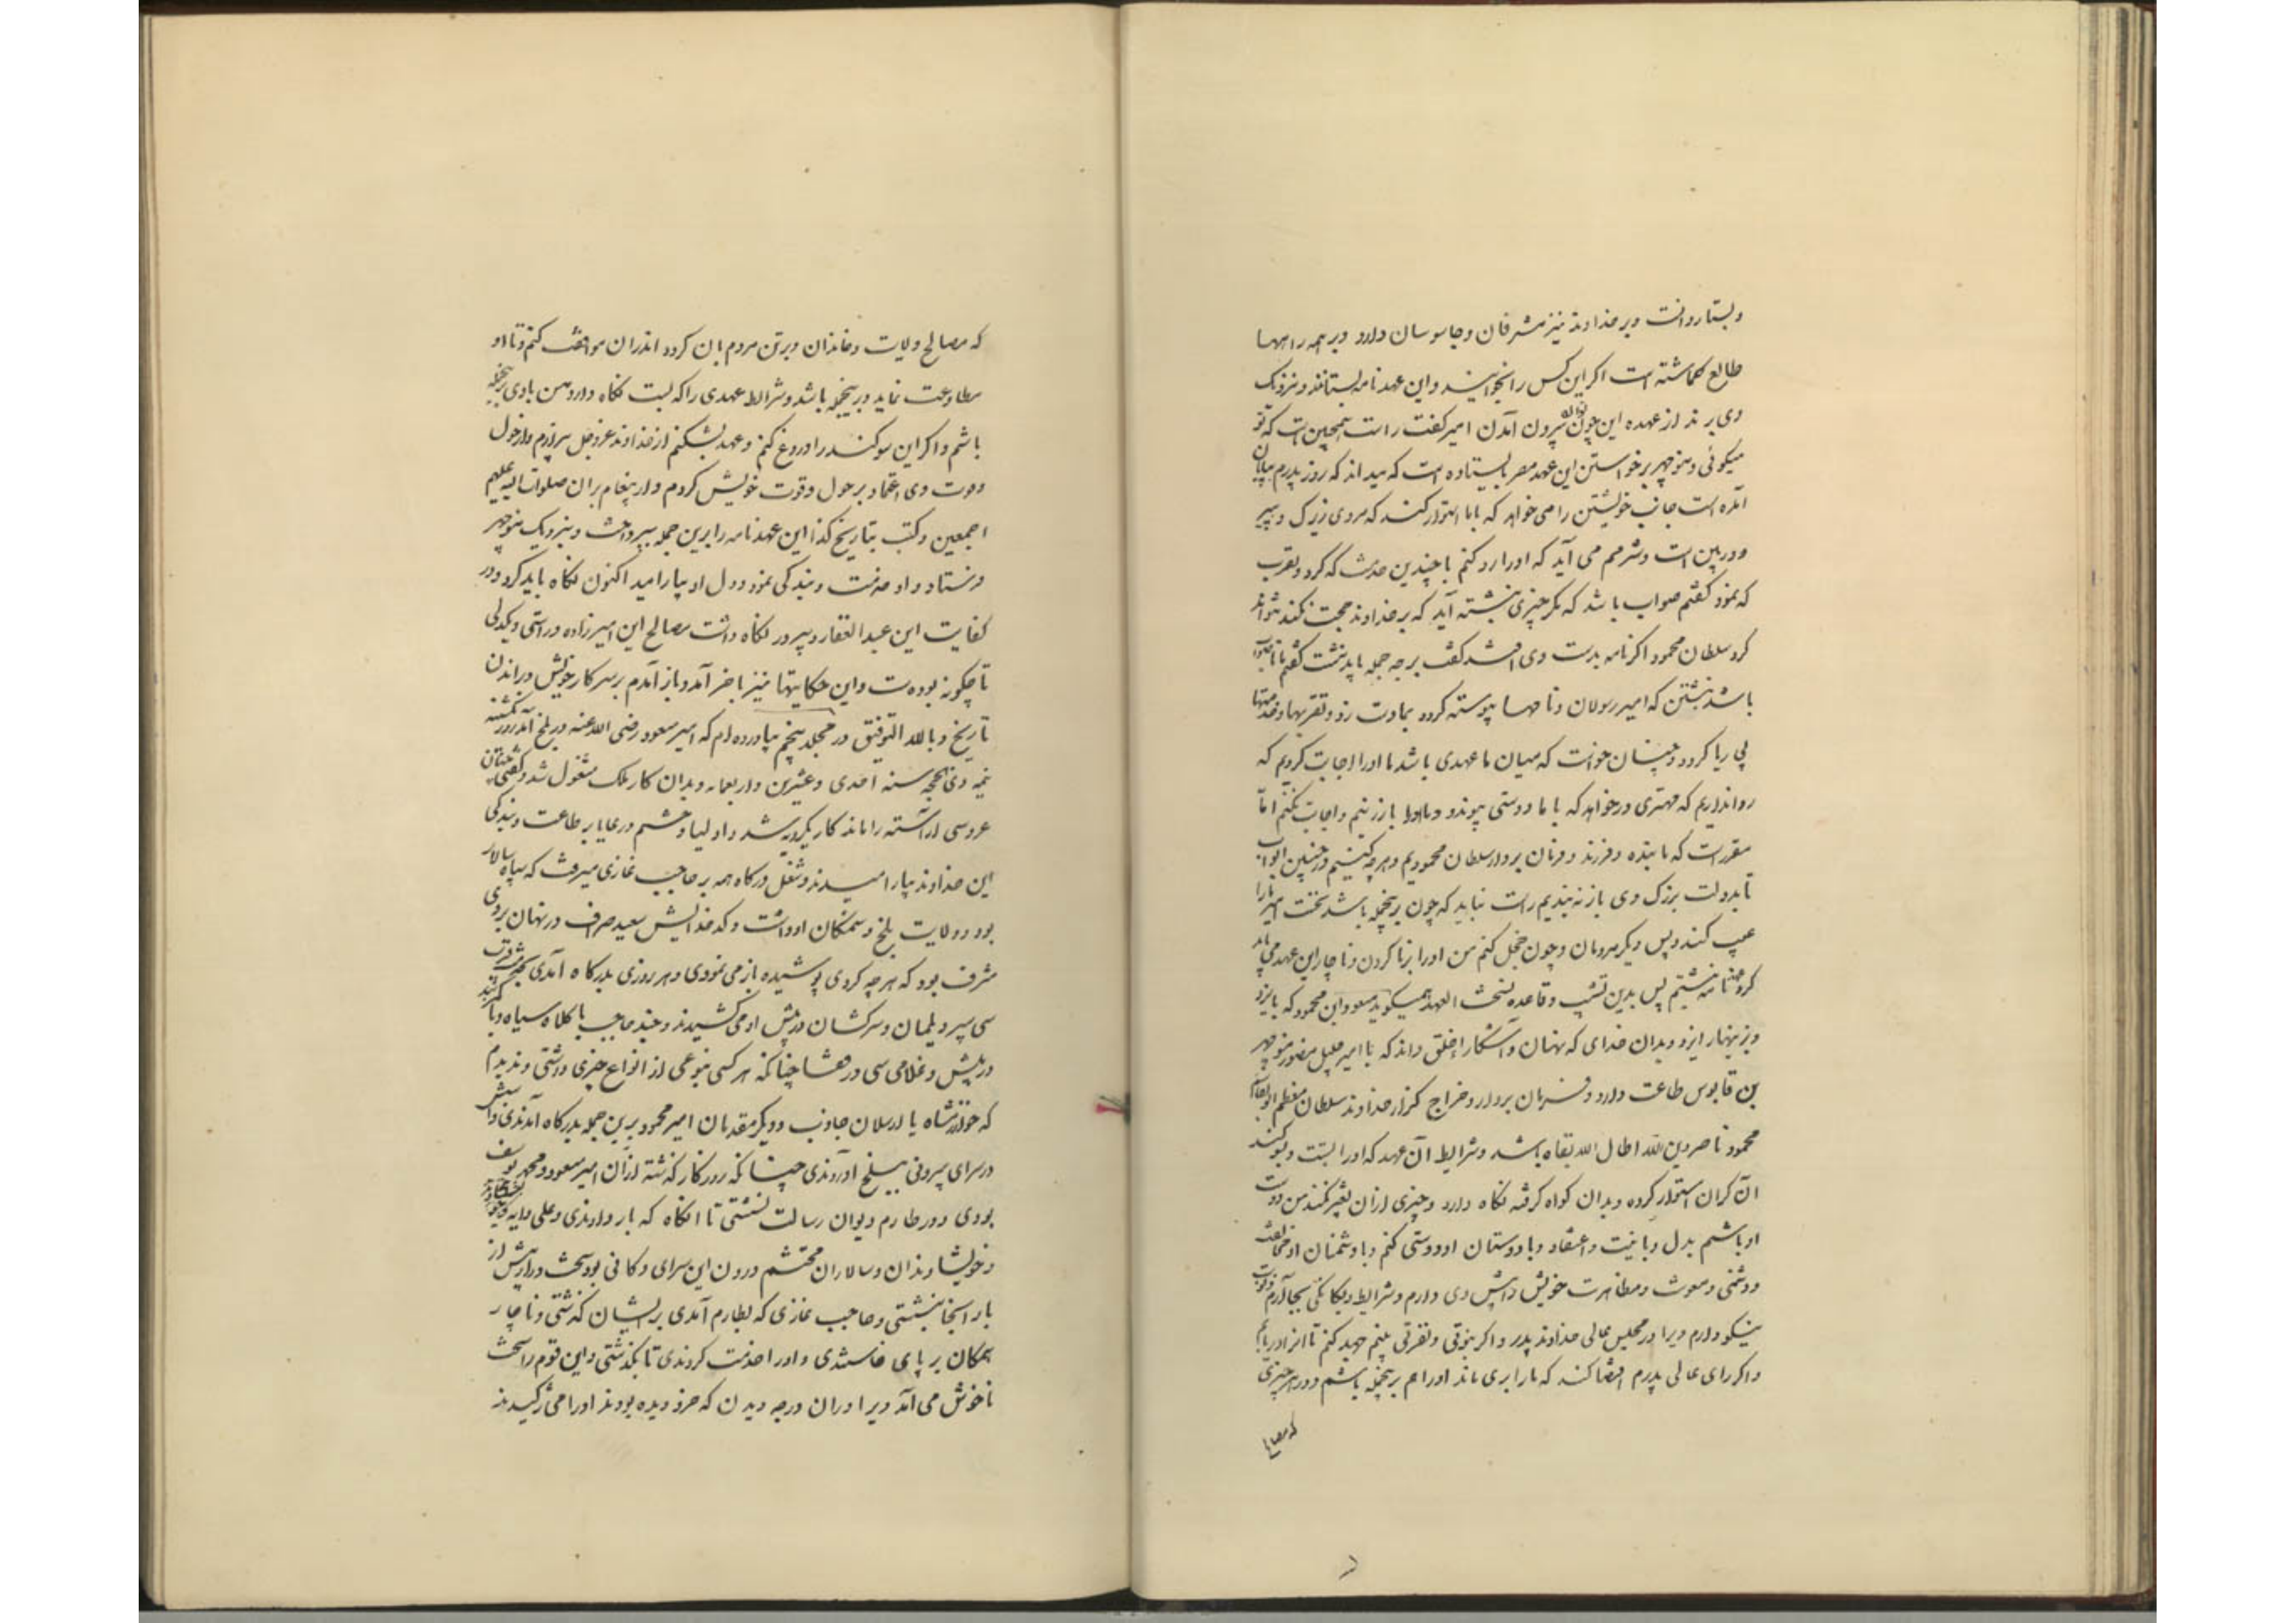 و بستاروانت و بر خداوند نیز مشرفان و جاسوسان دارد و بر همه راهها
طالع گماشته است اگر این کس را بخوانند و این عهدنامه بستانند و نزدیک
وی برند از عهده این چون توان بیرون آمدن امیر گفت راست همچنین است که تو
میگوئی و منوچهر بر خواستن این عهد مصر بایستاده است که میداند که روز پدرم بپایان
آمده است جانب خویشتن را می خواهد که با ما استوار کند که مردی زیرک و پیر
و دوربین است و شرمم می آید که او را رد کنم با چندین خدمت که کرد و تقرب
که نمود گفتم صواب باشد که مگر چیزی نبشته آید که بر خداوند حجت نکند نتواند
کرد سلطان محمود اگر نامه بدست وی افتد گفت بر چه جمله باید نبشت گفتم
باشد نبشتن که امیر رسولان و نامها پیوسته کرد و بما دست زد و تقربها و خدمتها
بی ریا کرد و چنان خواست که میان ما عهدی باشد ما او را اجابت کردیم که
روا نداریم که مهتری درخواهد که با ما دوستی پیوندد و ما او را باز زنیم و اجابت نکنیم اما
مقررست که ما بنده و فرزند و فرمان بردار سلطان محمودیم و هرچه کنیم در چنین ابواب
تا بدولت بزرگ وی باز نه بندیم راست نیاید که چون برینجمله باشد نخست امیر ما را
عیب کند و پس دیگر مردمان و چون خجل کنم من او را بر ناکردن و ناچار این عهد می باید
کرد نامه نبشتیم پس بدین تشبیب و قاعده نسخت العهد همیگوید مسعود بن محمود که بایزد
و بزینهار ایزد و بدان خدای که نهان و آشکارا خلق داند که تا امیر جلیل منصور منوچهر
بن قابوس طاعت دارد و فرمان بردار و خراج گزار خداوند سلطان معظم ابوالقاسم
محمود ناصر دین الله اطال الله بقاه باشد و شرایط آن عهد که او را بست و سوگند
آن گران استوار کرده و بدان گواه گرفته نگاه دارد و چیزی از آن تغییر نکند من دوست
او باشم بدل و با نیت و اعتقاد و با دوستان او دوستی کنم و با دشمنان او مخالفت
و دشمنی و معونت و مظاهرت خویش را پیش وی دارم و شرایط و یگانگی بجا آرم و نوبت
نیکو دارم ویرا در مجلس عالی خداوند پدر و اگر نبوتی و نفرتی بینم جهد کنم تا آنرا دریابم
و اگر رای عالی پدرم اقتضا کند که ما را بری ماند او را هم برینجمله باشم و در هر چیزی
که مصالح
که مصالح ولایت و خاندان و بر تن مردم بان گردد اندران موافقت کنم و تا او
مطاوعت نماید و برینجمله باشد و شرایط عهدی را که بست نگاه دارد من با وی برینجمله
باشم و اگر این سوگند را دروغ کنم و عهد بشکنم از خداوند عزوجل بیزارم و از حول
و قوت وی اعتماد بر حول و قوت خویش کردم و از پیغامبران صلوات الله علیهم
اجمعین و کتب بتاریخ کذا این عهدنامه را برین جمله بپرداخت و بنزدیک منوچهر
فرستاد و او خدمت و بندگی نمود و دل او بیارامید اکنون نگاه باید کرد و در
کفایت این عبدالغفار دبیر در نگاه داشت مصالح این امیرزاده و راستی و یکدلی
تا چگونه بوده ست و این حکایتها نیز بآخر آمد و باز آمدم بر سر کار خویش و راندن
تاریخ و بالله التوفیق در مجلد پنجم بیاورده ام که امیر مسعود رضی الله عنه در بلخ آمد روز یکشنبه
نیمه ذی الحجه سنه احدی و عشرین و اربعمایه و بدان کار ملک مشغول شد و گفتی جهان
عروسی آراسته را ماند کار یکرویه شد و اولیا و حشم و رعایا بر طاعت و بندگی
این خداوند بیارامیدند و شغل درگاه همه بر حاجب غازی میرفت که سپاه سالار
بود و ولایت بلخ و سمنگان او داشت و کدخدایش سعید صراف در نهان بر وی
مشرف بود که هر چه کردی پوشیده باز می نمودی و هر روزی بدرگاه آمدی
سی سپر دیلمان و سرکشان در پیش او می کشیدند و چند حاجب با کلاه سیاه و با
در پیش و غلامی سی در قفا چنانکه هر کسی بنوعی از انواع چیزی داشتی و ندیدم
که خوارزمشاه یا ارسلان جاذب و دیگر مقدمان امیر محمود برین جمله بدرگاه آمدندی و اسبش
در سرای بیرونی ببلخ آوردندی چنانکه روزگار گذشته از آن امیر مسعود و محمد و یوسف
بودی و در طارم دیوان رسالت نشستی تا آنگاه که بار دادندی و علی دایه
و خویشاوندان و سالاران محتشم درون این سرای دکانی بود سخت دراز پیش از
بار آنجا بنشستی و حاجب غازی که بطارم آمدی بر ایشان گذشتی و ناچار
همگان بر پای خاستندی و او را خدمت کردندی تا بگذشتی و این قوم را سخت
ناخوش می آمد ویرا در آن درجه دیدن که خرد دیده بودند او را می ژکیدند